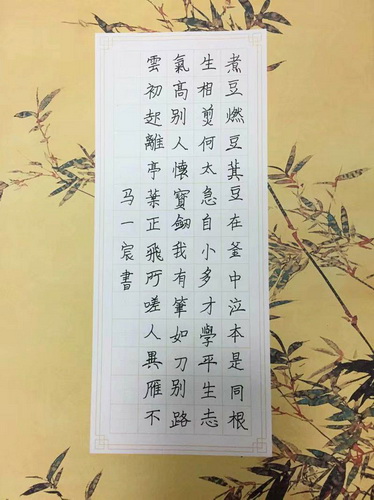 煮豆燃豆萁豆在釜中泣本是同根
生相煎何太急自小多才學平生志
氣高别人懷寶劒我有筆如刀别路
雲初起離亭葉正飛所嗟人異雁不
马一宸書